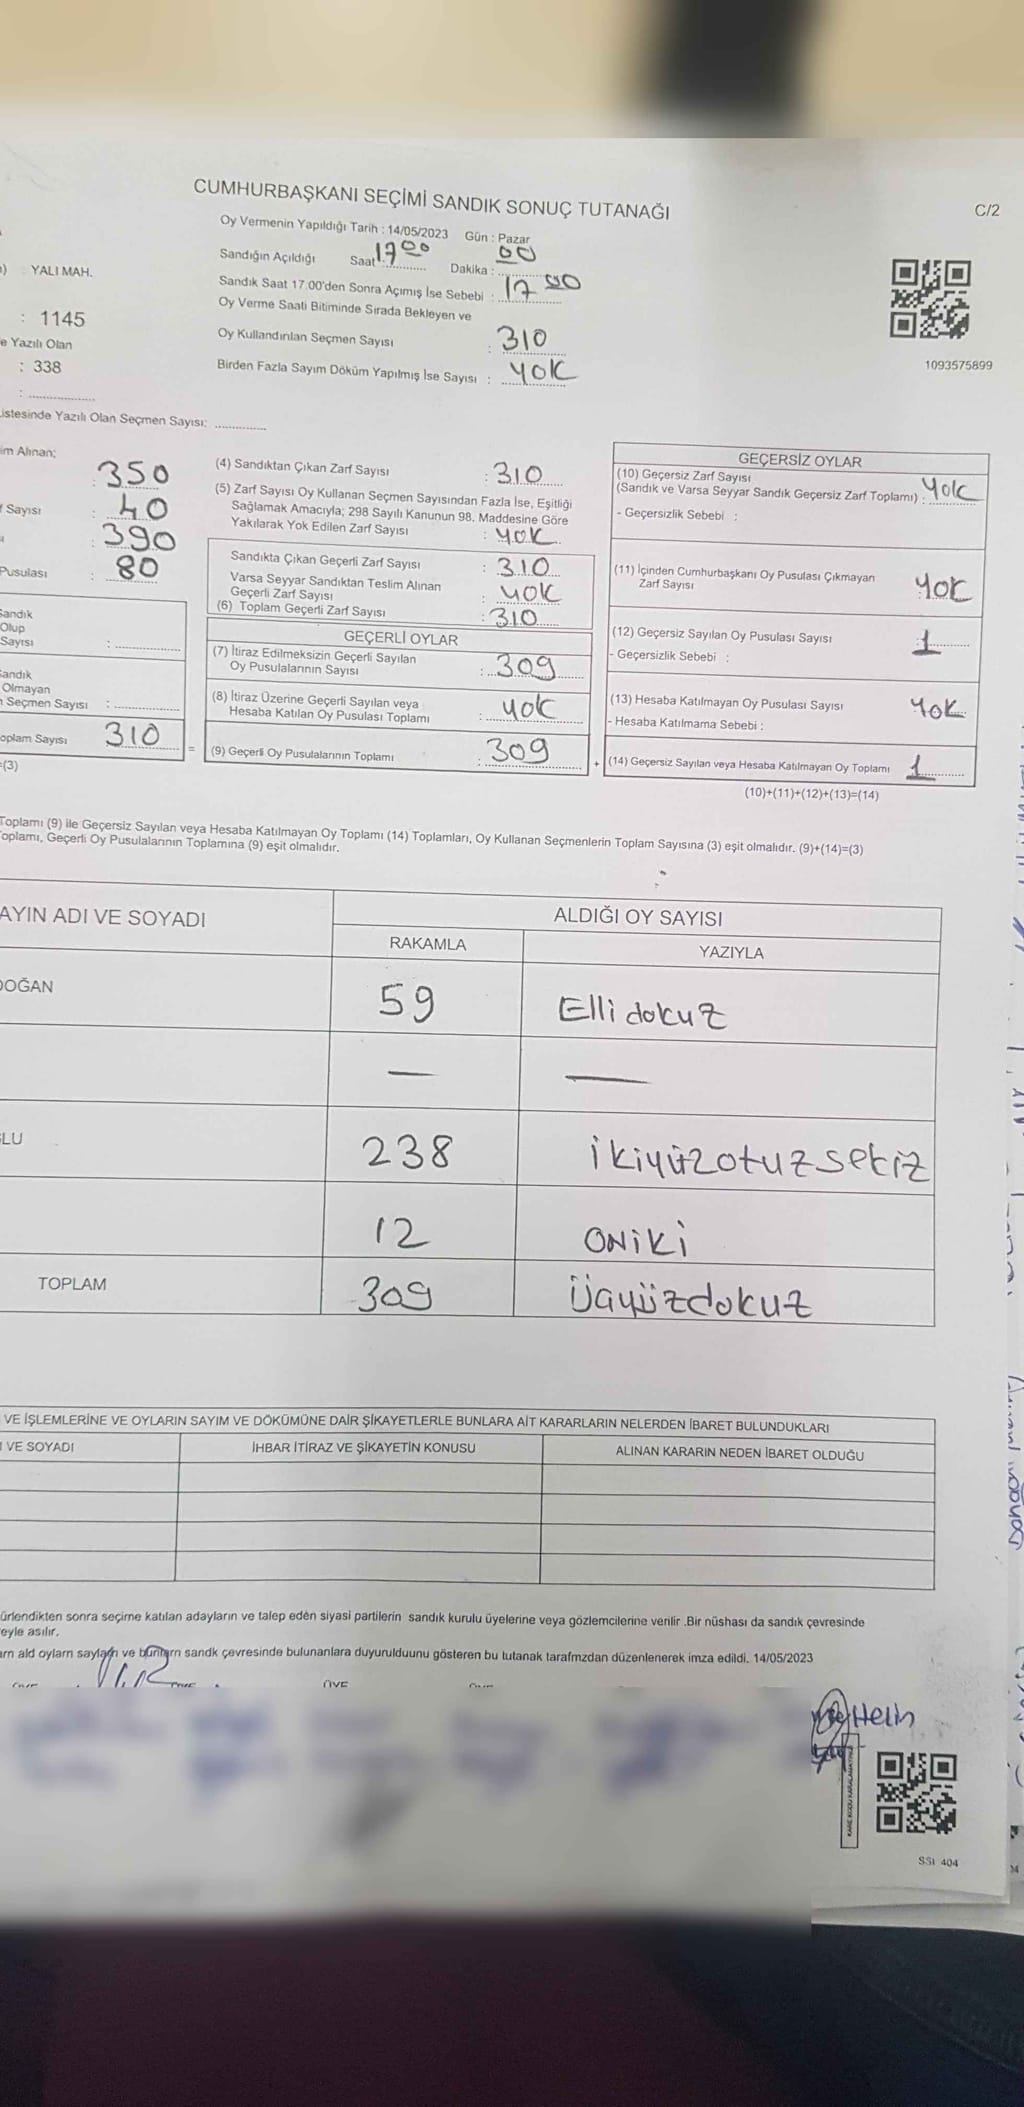 CUMHURBAŞKANI SEÇİMİ SANDIK SONUÇ TUTANAĞI
C/2
Oy Vermenin Yapıldığı Tarih : 14/05/2023 Gün : Pazar
Sandığın Açıldığı Saat : 17 00 Dakika : 00
YALI MAH.
Sandık Saat 17.00'den Sonra Açımış İse Sebebi : 17 00
Oy Verme Saati Bitiminde Sırada Bekleyen ve
: 1145
Oy Kullandırılan Seçmen Sayısı : 310
e Yazılı Olan
: 338
Birden Fazla Sayım Döküm Yapılmış İse Sayısı : YOK
1093575899
istesinde Yazılı Olan Seçmen Sayısı:
im Alınan;
: 350
Sayısı : 40
: 390
Pusulası : 80
Sandık
Olup
Sayısı :
Sandık
Olmayan
Seçmen Sayısı :
oplam Sayısı 310
=(3)
(4) Sandıktan Çıkan Zarf Sayısı : 310
(5) Zarf Sayısı Oy Kullanan Seçmen Sayısından Fazla İse, Eşitliği
Sağlamak Amacıyla; 298 Sayılı Kanunun 98. Maddesine Göre
Yakılarak Yok Edilen Zarf Sayısı : YOK
Sandıkta Çıkan Geçerli Zarf Sayısı : 310
Varsa Seyyar Sandıktan Teslim Alınan
Geçerli Zarf Sayısı : YOK
(6) Toplam Geçerli Zarf Sayısı : 310
GEÇERLİ OYLAR
(7) İtiraz Edilmeksizin Geçerli Sayılan
Oy Pusulalarının Sayısı : 309
(8) İtiraz Üzerine Geçerli Sayılan veya
Hesaba Katılan Oy Pusulası Toplamı : YOK
= (9) Geçerli Oy Pusulalarının Toplamı : 309
GEÇERSİZ OYLAR
(10) Geçersiz Zarf Sayısı
(Sandık ve Varsa Seyyar Sandık Geçersiz Zarf Toplamı) : YOK
- Geçersizlik Sebebi :
(11) İçinden Cumhurbaşkanı Oy Pusulası Çıkmayan
Zarf Sayısı : YOK
(12) Geçersiz Sayılan Oy Pusulası Sayısı : 1
- Geçersizlik Sebebi :
(13) Hesaba Katılmayan Oy Pusulası Sayısı : YOK
- Hesaba Katılmama Sebebi :
+ (14) Geçersiz Sayılan veya Hesaba Katılmayan Oy Toplamı : 1
(10)+(11)+(12)+(13)=(14)
Toplamı (9) ile Geçersiz Sayılan veya Hesaba Katılmayan Oy Toplamı (14) Toplamları, Oy Kullanan Seçmenlerin Toplam Sayısına (3) eşit olmalıdır. (9)+(14)=(3)
oplamı, Geçerli Oy Pusulalarının Toplamına (9) eşit olmalıdır.
AYIN ADI VE SOYADI
ALDIĞI OY SAYISI
RAKAMLA YAZIYLA
DOĞAN 59 Elli dokuz
— —
LU 238 ikiyüzotuzsekiz
12 ONİKİ
TOPLAM 309 Üçyüzdokuz
VE İŞLEMLERİNE VE OYLARIN SAYIM VE DÖKÜMÜNE DAİR ŞİKAYETLERLE BUNLARA AİT KARARLARIN NELERDEN İBARET BULUNDUKLARI
VE SOYADI İHBAR İTİRAZ VE ŞİKAYETİN KONUSU ALINAN KARARIN NEDEN İBARET OLDUĞU
ürlendikten sonra seçime katılan adayların ve talep eden siyasi partilerin sandık kurulu üyelerine veya gözlemcilerine verilir .Bir nüshası da sandık çevresinde
eyle asılır.
arn ald oylarn saylarn ve bunlarn sandk çevresinde bulunanlara duyurulduunu gösteren bu tutanak tarafmzdan düzenlenerek imza edildi. 14/05/2023
Helin
KARE KODU KARALAMAYINIZ
SSI 404